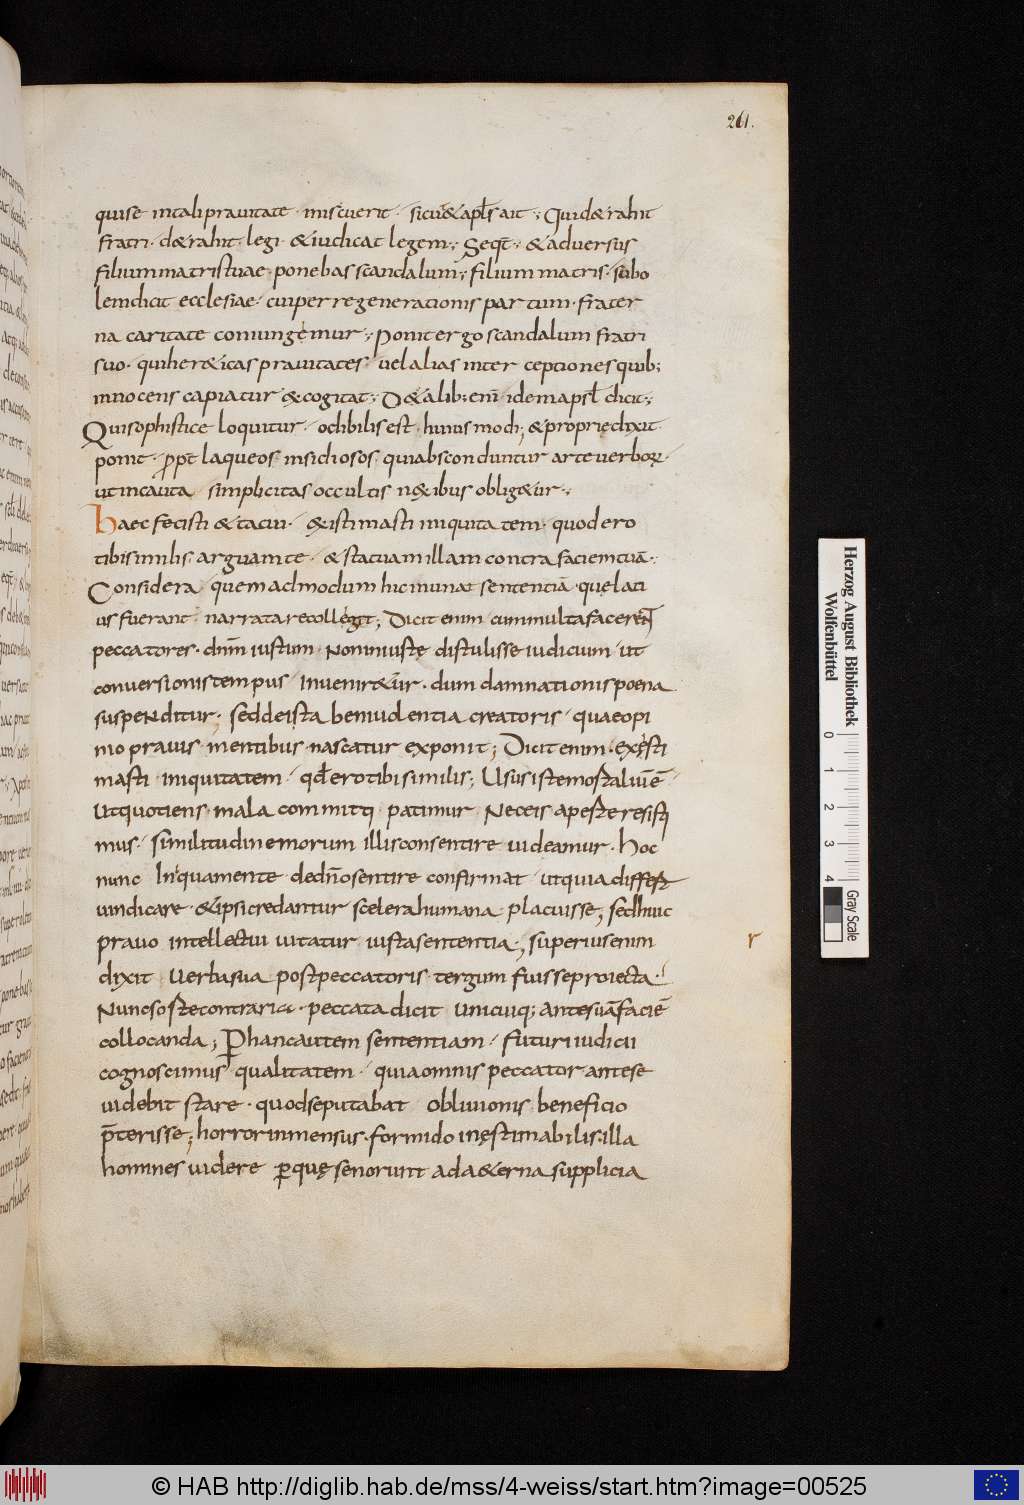 261.
quise intali prauitate · miscuerit · sicut & apl̄s ait ·; Qui d&rahit
fratri · d&rahit · legi · & iudicat legem ·; Seqt̄ ·; & aduersus
filium matris tuae · ponebas scandalum ·; filium matris · subo
lem dicit ecclesiae · cui per regenerationis partum · frater
na caritate coniungemur ·; Ponit ergo scandalum fratri
suo · qui her&icas prauitates · uel alias inter ceptiones quib;
innocens capiatur & cogitat ·; D& alib; enī · idem apsl̄ dicit ·;
Qui sophistice loquitur · odibilis est · huius modi; & proprię dixit
ponit · ꝓpt̄ laqueos insidiosos quia absconduntur arte uerboꝝ ·
ut incauta simplicitas occultis n&ibus oblig&ur ·;
Haec fecisti & tacui · & istimasti iniquitatem · quod ero
tibi similis · arguam te · & statuam illam contra faciem tuā ·
Considera quem admodum hic munat sententiā · quę lati
us fuerant narrata recollegit; Dicit enim cum multa facerent
peccatores · dn̄m iustum · Non iniustę distulisse iudicium · ut
conuersionis tempus inuenir&ur · dum damnationis poena
suspenditur; sed de ista beniuolentia creatoris · quae opi
nio prauis mentibus nascatur exponit; Dicit enim · exęsti
masti iniquitatem · qd̄ ero tibi similis; Usus iste mostaliū ē
Ut quotiens mala committi patimur Nec eis a peste resisti
mus · similitudine morum illis consentire uideamur · Hoc
nunc Iniqua mente de dn̄o sentire confirmat ut quia differt
uindicare · & ipsi credantur scelera humana placuisse; sed huic
prauo intellectui uitatur iusta sententia ·; superius enim
dixit uerba sua post peccatoris tergum fuisse proiecta ·
Nunc so ste contrario · peccata dicit unicuiq; ante suā faciē
collocanda; Per hanc autem sententiam · futuri iudicii
cognoscimus qualitatem · quia omnis peccator ante se
uidebit stare · quod se putabat obliuionis beneficio
p̄terisse; horror inmensus · formido inęstimabilis · illa
homines uidere ꝑ quę se norunt ad a&erna supplicia
r
Herzog August Bibliothek
Wolfenbüttel
0 1 2 3 4
Gray Scale
© HAB http://diglib.hab.de/mss/4-weiss/start.htm?image=00525